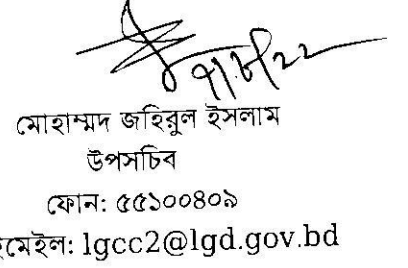 মোহাম্মদ জহিরুল ইসলাম
উপসচিব
ফোন: ৫৫১০০৪০৯
ইমেইল: lgcc2@lgd.gov.bd